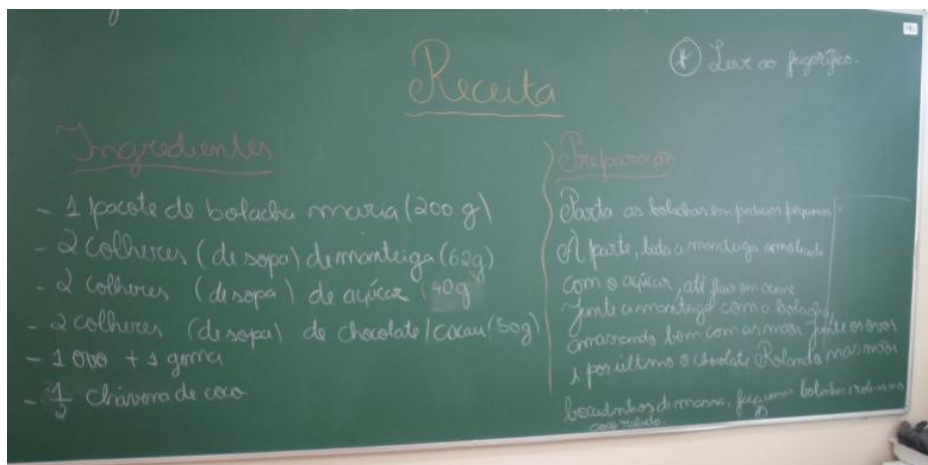 Receita
* Levar ao frigorífico.
Ingredientes
- 1 pacote de bolacha maria (200 g)
- 2 colheres (de sopa) de manteiga (60g)
- 2 colheres (de sopa) de açúcar (40g)
- 2 colheres (de sopa) de chocolate/cacau (50g)
- 1 ovo + 1 gema
- 1/2 chávena de coco
Preparação
Parta as bolachas em pedaços pequenos.
À parte, bata a manteiga amolecida
com o açúcar, até ficar em creme
Junte a manteiga com a bolacha,
amassando bem com as mãos. Junte os ovos
e por último o chocolate. Rolando nas mãos
bocadinhos de massa, faça umas bolinhas e role-as no
coco ralado.